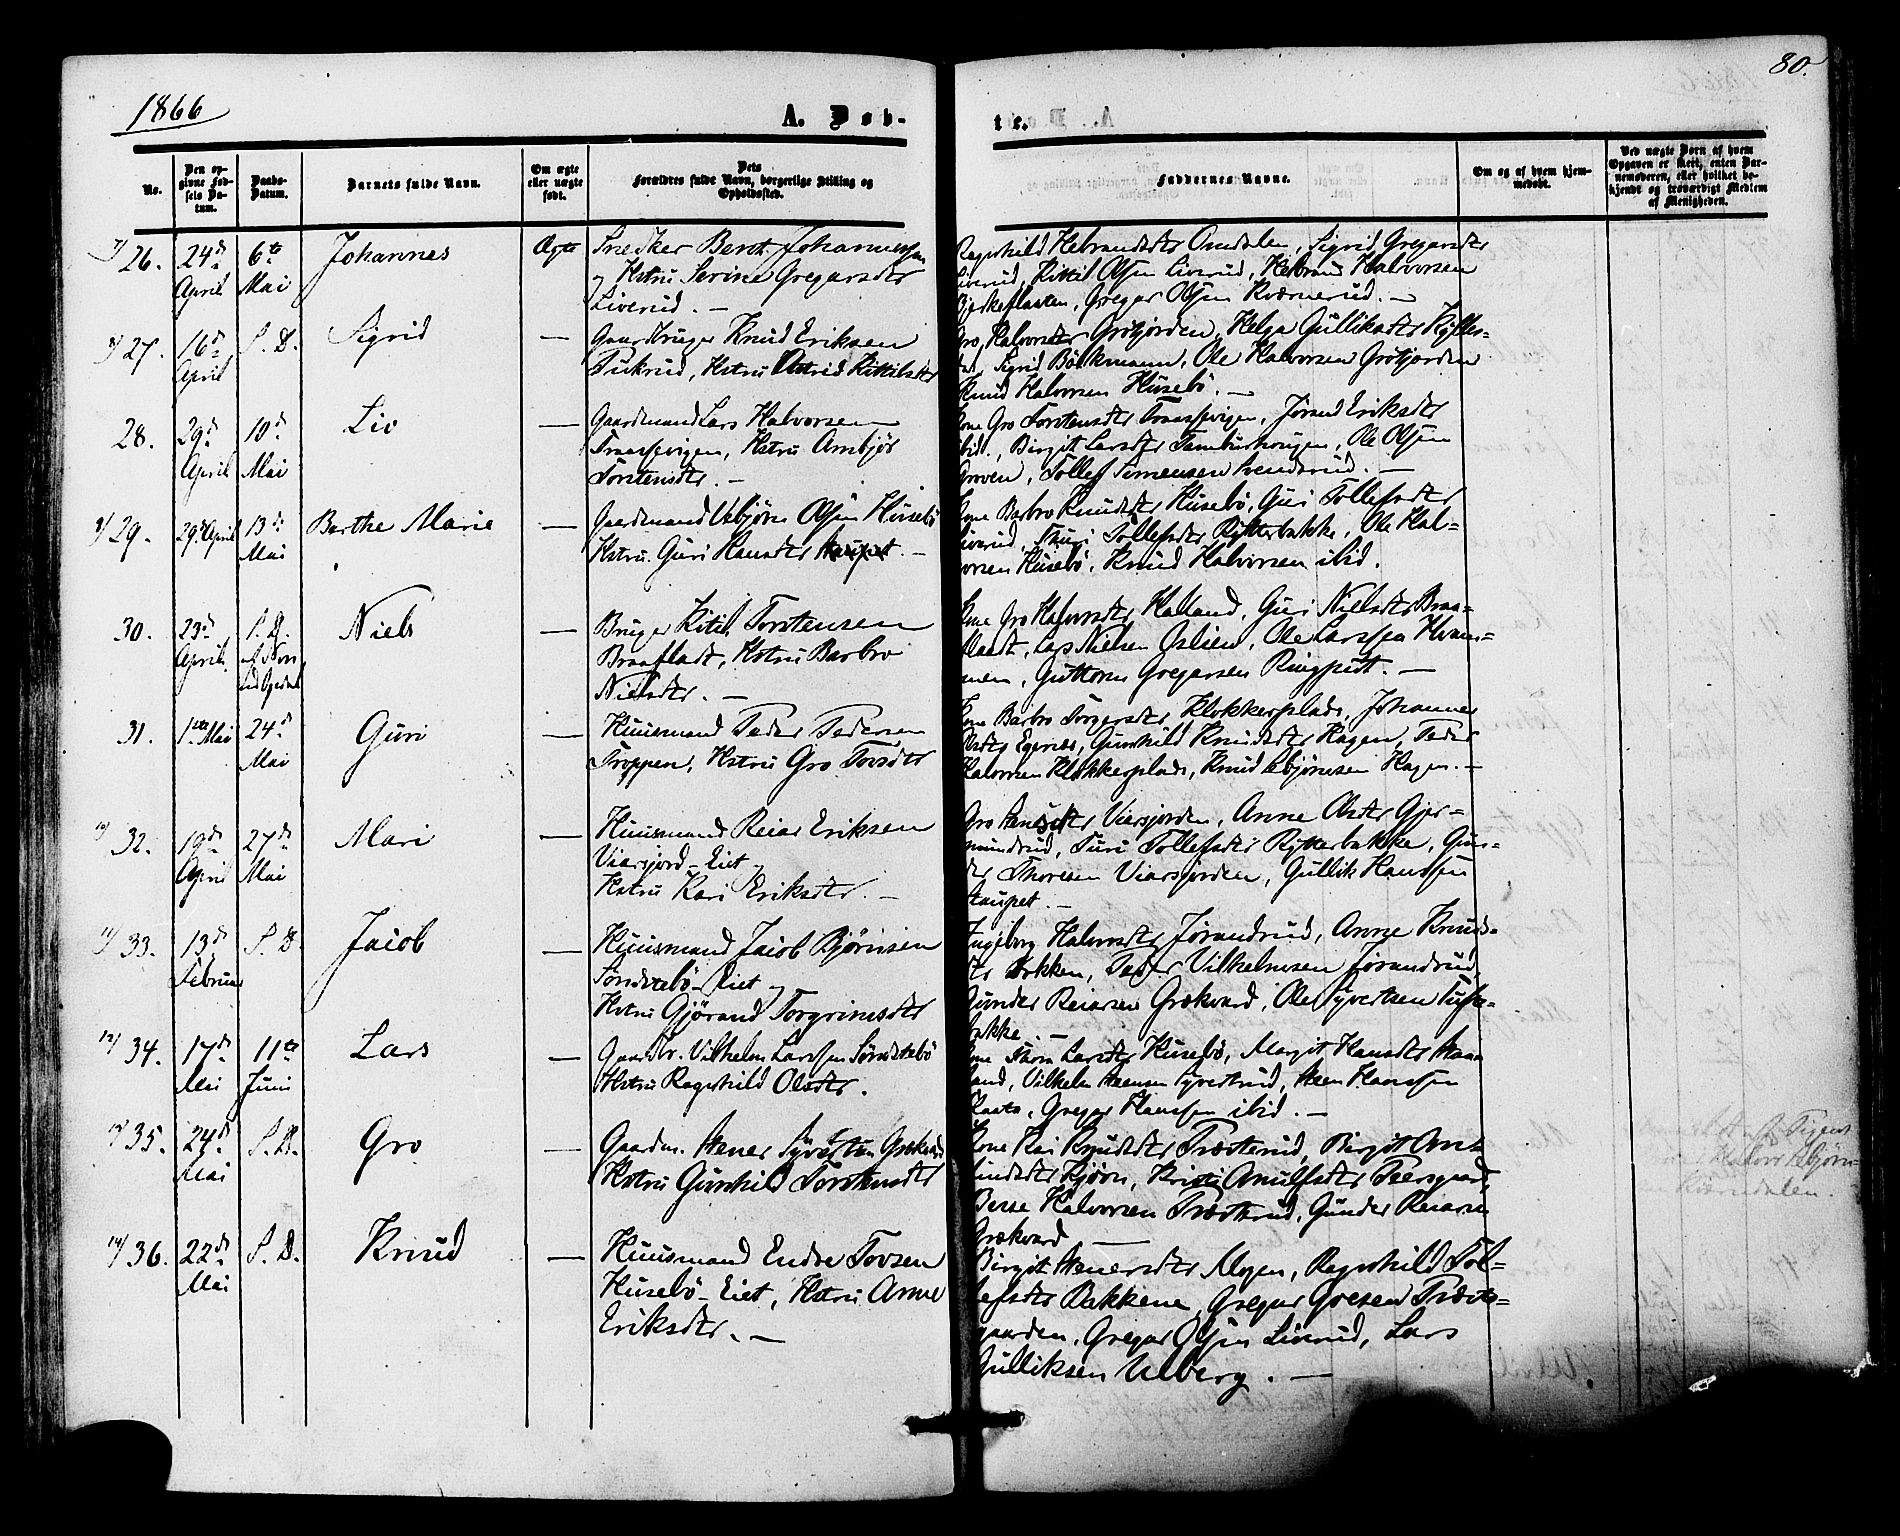 1866
A. Døb-
te.
80.
No.
Den op-
givne Fød-
sels Da-
tum.
Daabs-
Datum.
Barnets fulde Navn.
Om ægte
eller uægte
født.
Dets
Forældres fulde Navn, borgerlige Stilling og
Opholdssted.
Faddernes Navne.
Om og af hvem hjem-
medøbt.
Ved uægte Børn af hvem
Opgaven er skeet, enten Bar-
nemoderen, eller hvilket be-
kjendt og troværdigt Medlem
af Menigheden.
26. 24de April 6te Mai Johannes Ægte
Snedker Bernt Johannessen
og Hstru Serine Gregarsdtr
Liverud. —
Ragnhild Hebrandsdtr Omdalen, Sigrid Gregarsdtr
Liverud, Kittil Olsen Liverud, Hebrand Halvorsen
Bjerkeflaaten, Gregar Olsen Kværnerud. —
27. 16de April S. D. Sigrid —
Gaardbruger Knud Eriksen
Hstru Astrid Kittilsdtr
Gro Halvorsdtr Grötjorden, Helga Gulliksdtr
Sigrid Bölkmann, Ole Halvorsen Grötjorden
Knud Halvorsen Husebö. —
28. 29de April 10de Mai Liv —
Gaardmand Lars Halvorsen
Hstru Ambjör
Torstensdtr. —
Kone Gro Torstensdtr Jörand Eriksdtr
ibid., Birgit Larsdtr Ole Olsen
Groven, Tollef Simensen —
29. 29de April 13de Mai Berthe Marie —
Gaardmand Vebjörn Olsen Husebö
Hstru Guri Hansdtr —
Kone Barbro Knudsdtr Husebö, Guri Tollefsdtr
Liverud, Thuri Tollefsdtr Rytterbakke, Ole Hal-
vorsen Husebö, Knud Halvorsen ibid.
30. 23de April S. D. Niels —
Bruger Kittil Torstensen
Braafladt, Hstru Barbro
Nielsdtr. —
Kone Gro Halvorsdtr Haland, Guri Nielsdtr Braa-
fladt, Lars Nielsen Oslien, Ole Larssen Hvam-
men, Guttorm Gregarsen Ringputt. —
31. 1ste Mai 24de Mai Guri —
Huusmand Peder Pedersen
Troppen, Hstru Gro Tovsdtr
Kone Barbro Torgersdtr Klokkerplads, Johanne
Olsdtr Egernæs, Gunhild Knudsdtr Hagen, Peder
Halvorsen Klokkerplads, Knud Vebjörnsen Hagen. —
32. 19de April 27de Mai Mari —
Huusmand Reiar Eriksen
Viarsjord-Eiet
Hstru Kari Eriksdtr. —
Gro Hansdtr Viersjorden, Anne Olsdtr Gjer-
mundrud, Turi Tollefsdtr Rytterbakke, Gun-
der Thoresen Viarsjorden, Gullik Hanssen
Haupet. —
33. 13de Februar S. D. Jacob —
Huusmand Jacob Björnsen
Söndstebö-Eiet
Hstru Gjörand Torgrimsdtr
Ingeborg Halvorsdtr Jörandrud, Anne Knuds-
dtr Bakken, Peder Vilhelmsen Jörandrud,
Gunder Reiarsen Grækvard, Ole Syvertsen Tufte-
bakke. —
34. 17de Mai 11te Juni Lars —
Gaardbr. Vilhelm Larssen Söndstebö
Hstru Ragnhild Olsdtr.
Kone Thora Larsdtr Husebö, Margit Hansdtr
Vilhelm Steensen Syvertrud, Steen Hanssen
Gregar Hanssen ibid. —
35. 24de Mai S. D. Gro —
Gaardm. Stener Syvertsen Grækvard
Hstru Gunhild Torstensdtr
Kone Kari Knudsdtr Trøsterud, Birgit Am-
undsdtr Kjörn, Kristi Arnulfsdtr
Halvorsen Trøsterud, Gunder Reiarsen
Grækvard —
36. 22de Mai S. D. Knud —
Huusmand Endre Tovsen
Husebö-Eiet, Hstru Anne
Eriksdtr. —
Birgit Stenersdtr Moen, Ragnhild Tol-
lefsdtr Bakkene, Gregar Goesen
Gregar Olsen Liverud, Lars
Gulliksen Ulberg. —